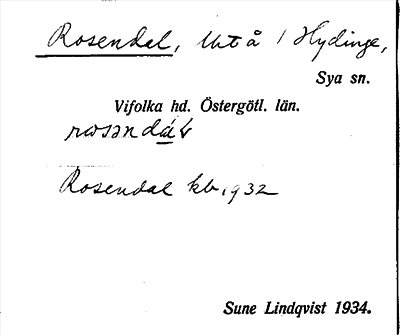 Rosendal, utå / Hydinge,
Sya sn.
Vifolka hd. Östergötl. län.
Rosendal kb. 1932
Sune Lindqvist 1934.